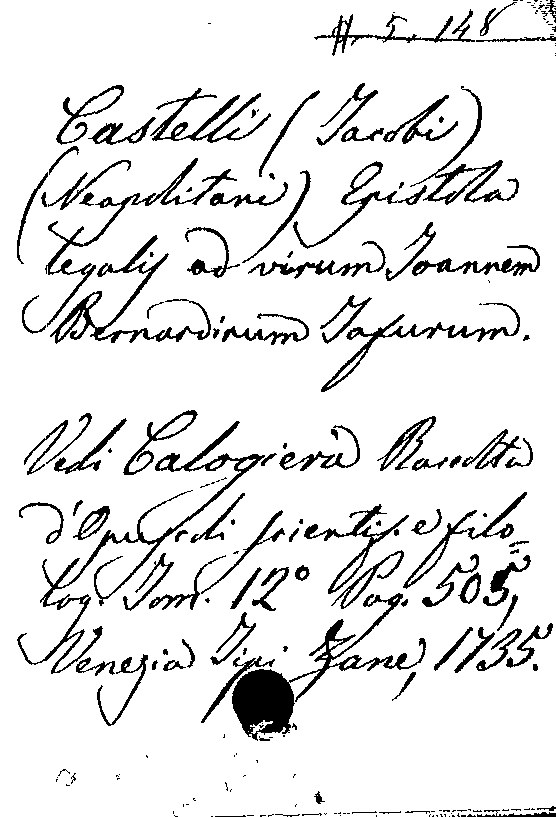 H. 5. 148
Castelli (Jacobi)
(Neapolitani) Epistola
legalis ad virum Joannem
Bernardinum Tafurum.
Vedi Calogierà Raccolta
d'Opuscoli scientif. e filo=
log. Tom. 12° Pag. 505,
Venezia Tipi Zane, 1735.